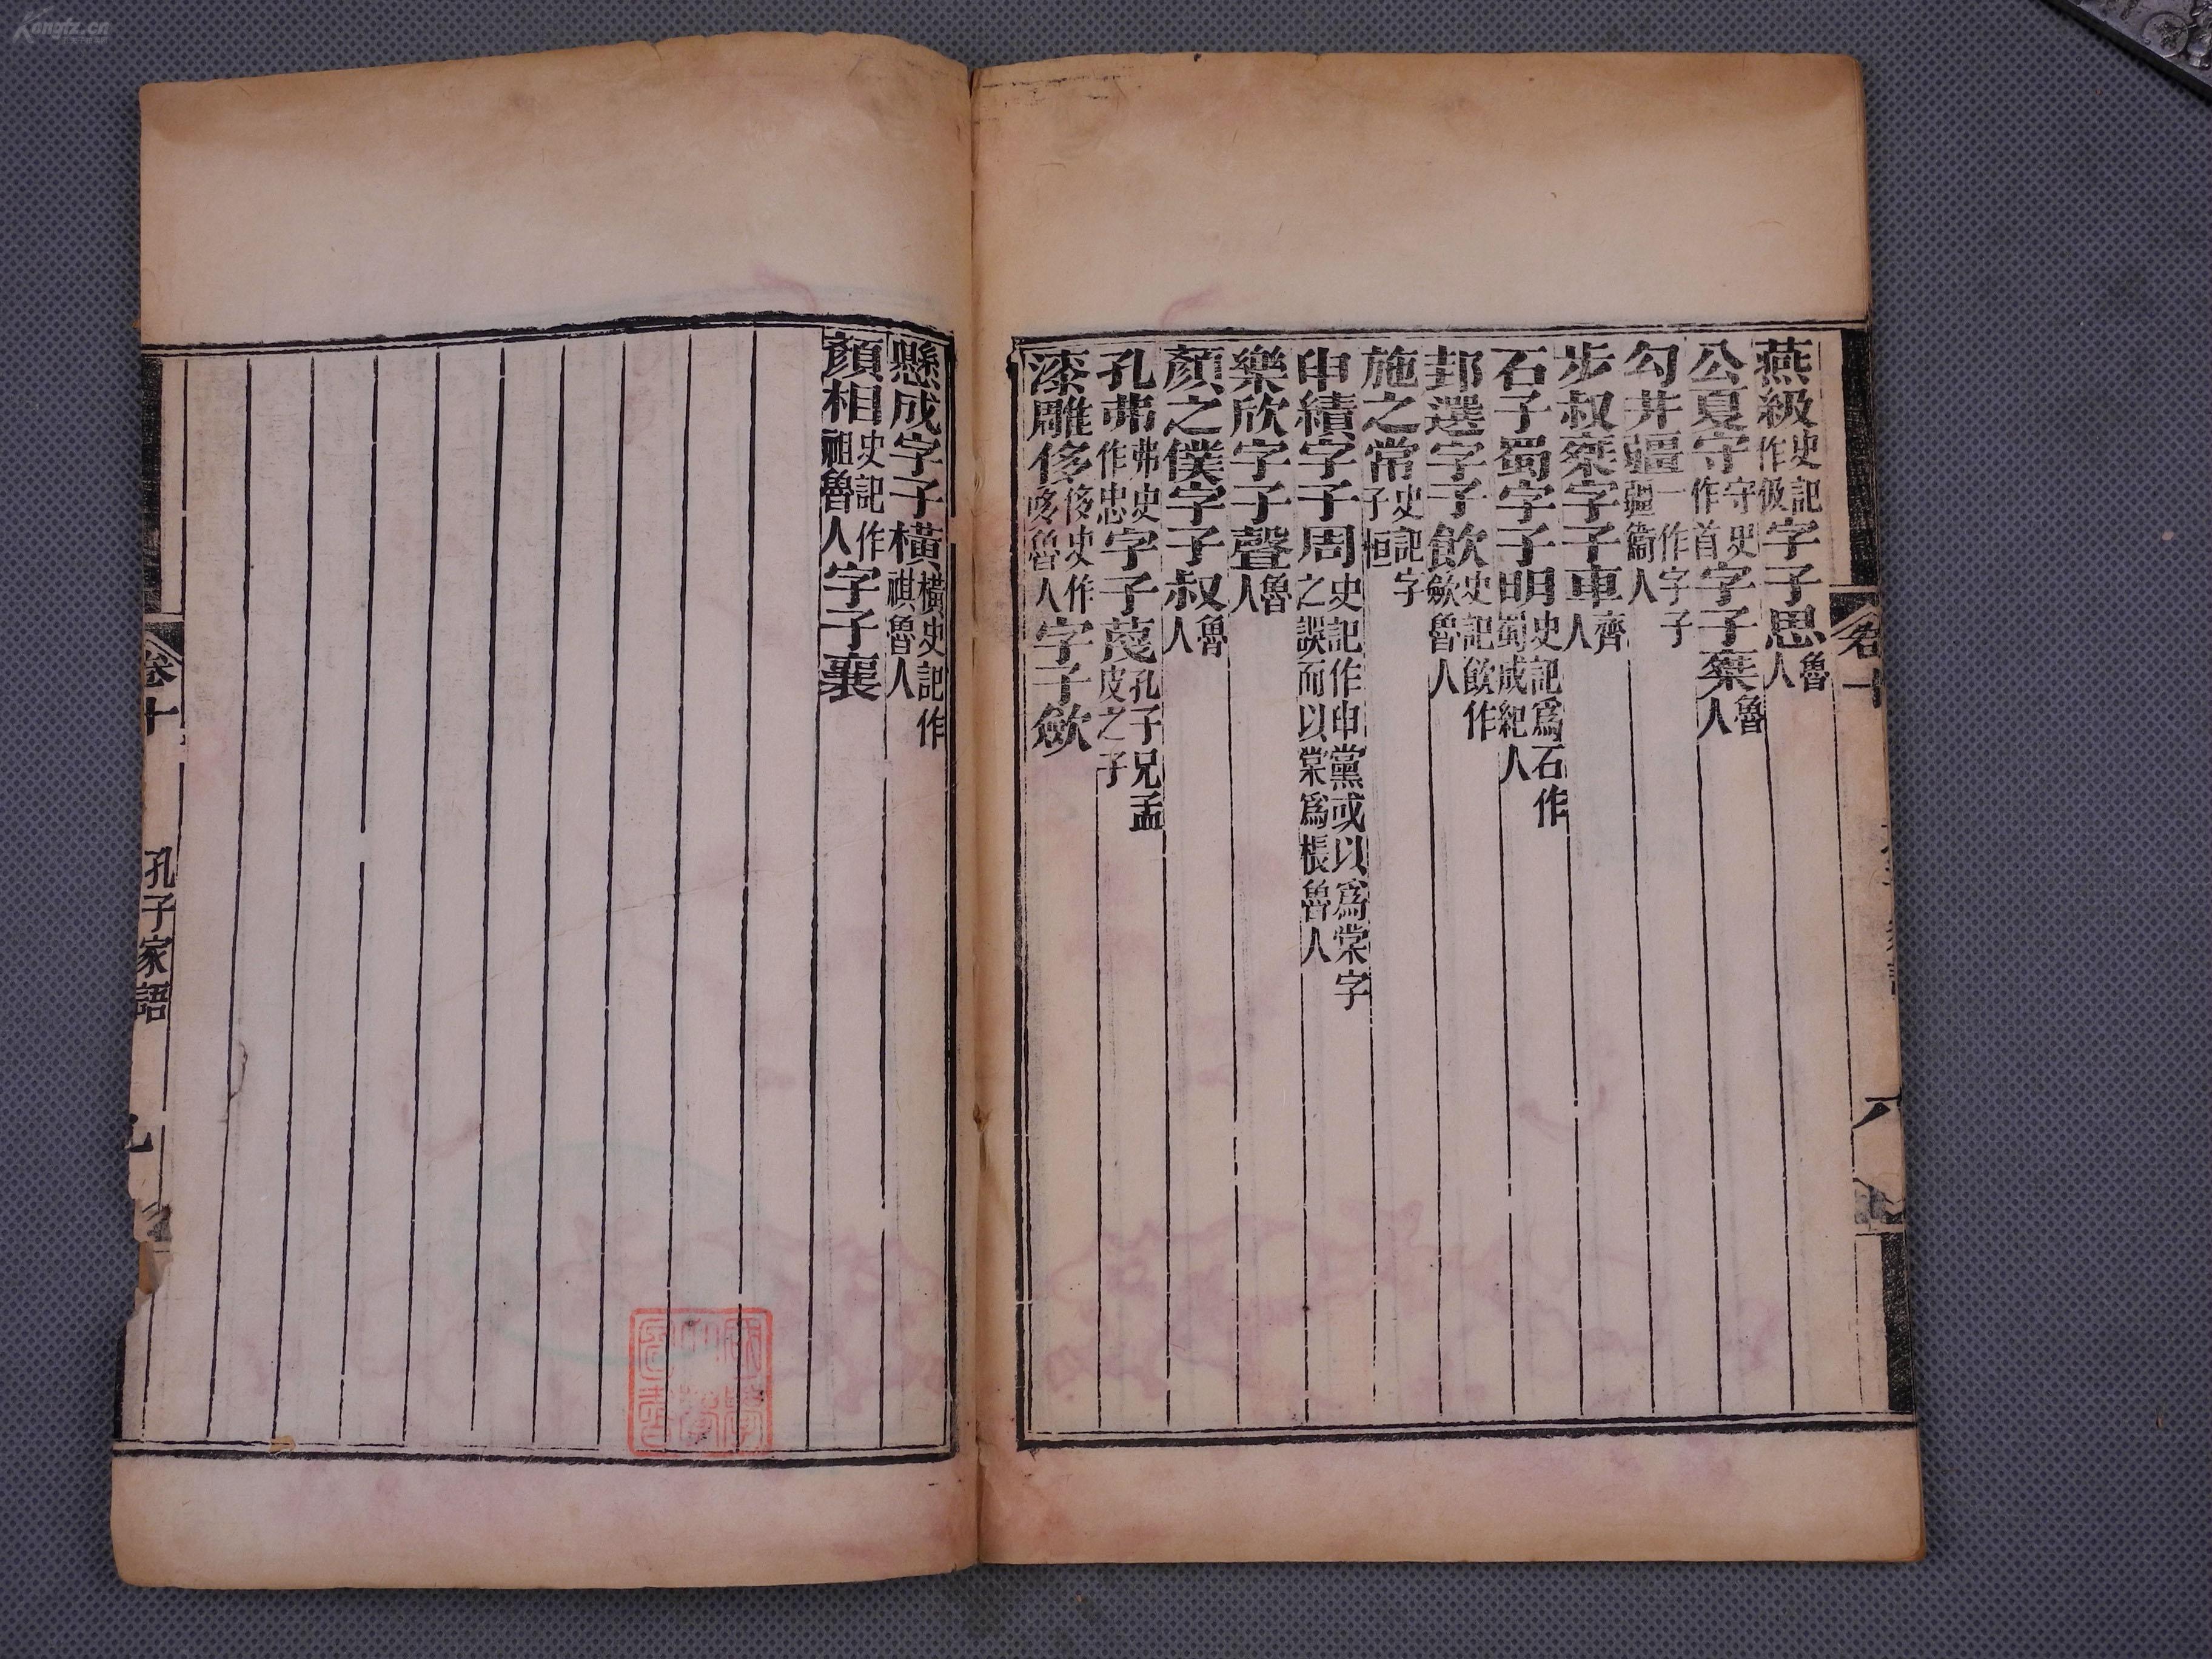 燕級史記作伋字子思魯人
公夏守守史作首字子椉魯人
勾井疆一作字子疆衞人
步叔椉字子車齊人
石子蜀字子明史記爲石作蜀成紀人
邽選字子飮史記飮作斂魯人
施之常史記字子恒
申績字子周史記作申黨或以爲棠字之誤而以棠爲棖魯人
樂欣字子聲魯人
顏之僕字子叔魯人
孔弗弗史作忠字子蔑孔子兄孟皮之子
漆雕侈侈史作哆魯人字子斂
卷十
八
懸成字子橫橫史記作祺魯人
顏相史記作祖魯人字子襄
卷十
孔子家語
九
Kongfz.cn